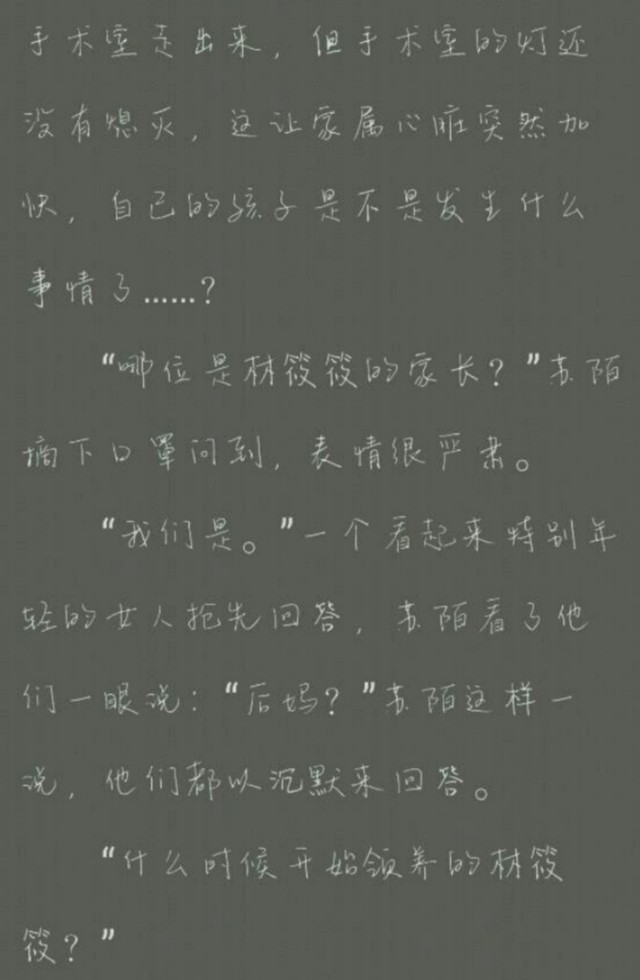 手术室走出来，但手术室的灯还
没有熄灭，这让家属心脏突然加
快，自己的孩子是不是发生什么
事情了……？
“哪位是林筱筱的家长？”苏陌
摘下口罩问到，表情很严肃。
“我们是。”一个看起来特别年
轻的女人抢先回答，苏陌看了他
们一眼说：“后妈？”苏陌这样一
说，他们都以沉默来回答。
“什么时候开始领养的林筱
筱？”